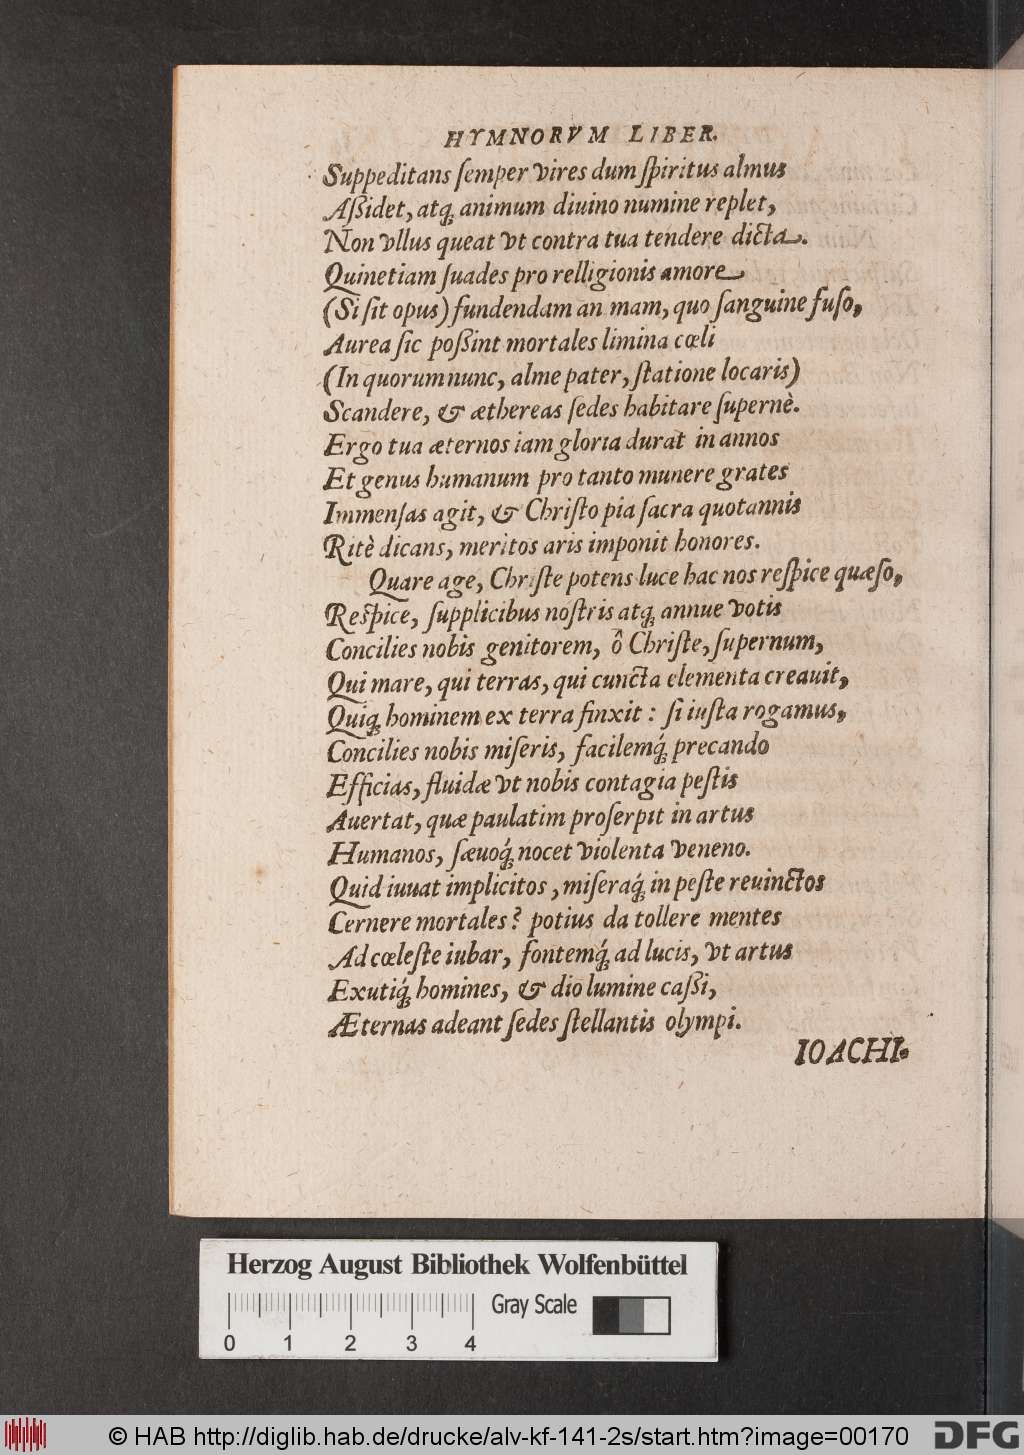 HYMNORVM LIBER.
Suppeditans ſemper vires dum ſpiritus almus
Aßidet, atq; animum diuino numine replet,
Non vllus queat vt contra tua tendere dicta.
Quinetiam ſuades pro relligionis amore
(Si ſit opus) fundendam an mam, quo ſanguine fuſo,
Aurea ſic poßint mortales limina cœli
(In quorum nunc, alme pater, ſtatione locaris)
Scandere, & æthereas ſedes habitare ſupernè.
Ergo tua æternos iam gloria durat in annos
Et genus humanum pro tanto munere grates
Immenſas agit, & Chriſto pia ſacra quotannis
Ritè dicans, meritos aris imponit honores.
Quare age, Chriſte potens luce hac nos reſpice quæſo,
Reſpice, ſupplicibus noſtris atq; annue votis
Concilies nobis genitorem, ô Chriſte, ſupernum,
Qui mare, qui terras, qui cuncta elementa creauit,
Quiq; hominem ex terra finxit: ſi iuſta rogamus,
Concilies nobis miſeris, facilemq́; precando
Efficias, fluidæ vt nobis contagia peſtis
Auertat, quæ paulatim proſerpit in artus
Humanos, ſæuoq́; nocet violenta veneno.
Quid iuuat implicitos, miſeraq́; in peſte reuinctos
Cernere mortales? potius da tollere mentes
Ad cœleſte iubar, fontemq́; ad lucis, vt artus
Exutiq́; homines, & dio lumine caßi,
Æternas adeant ſedes ſtellantis olympi.
IOACHI-
Herzog August Bibliothek Wolfenbüttel
Gray Scale
0 1 2 3 4
© HAB http://diglib.hab.de/drucke/alv-kf-141-2s/start.htm?image=00170
DFG